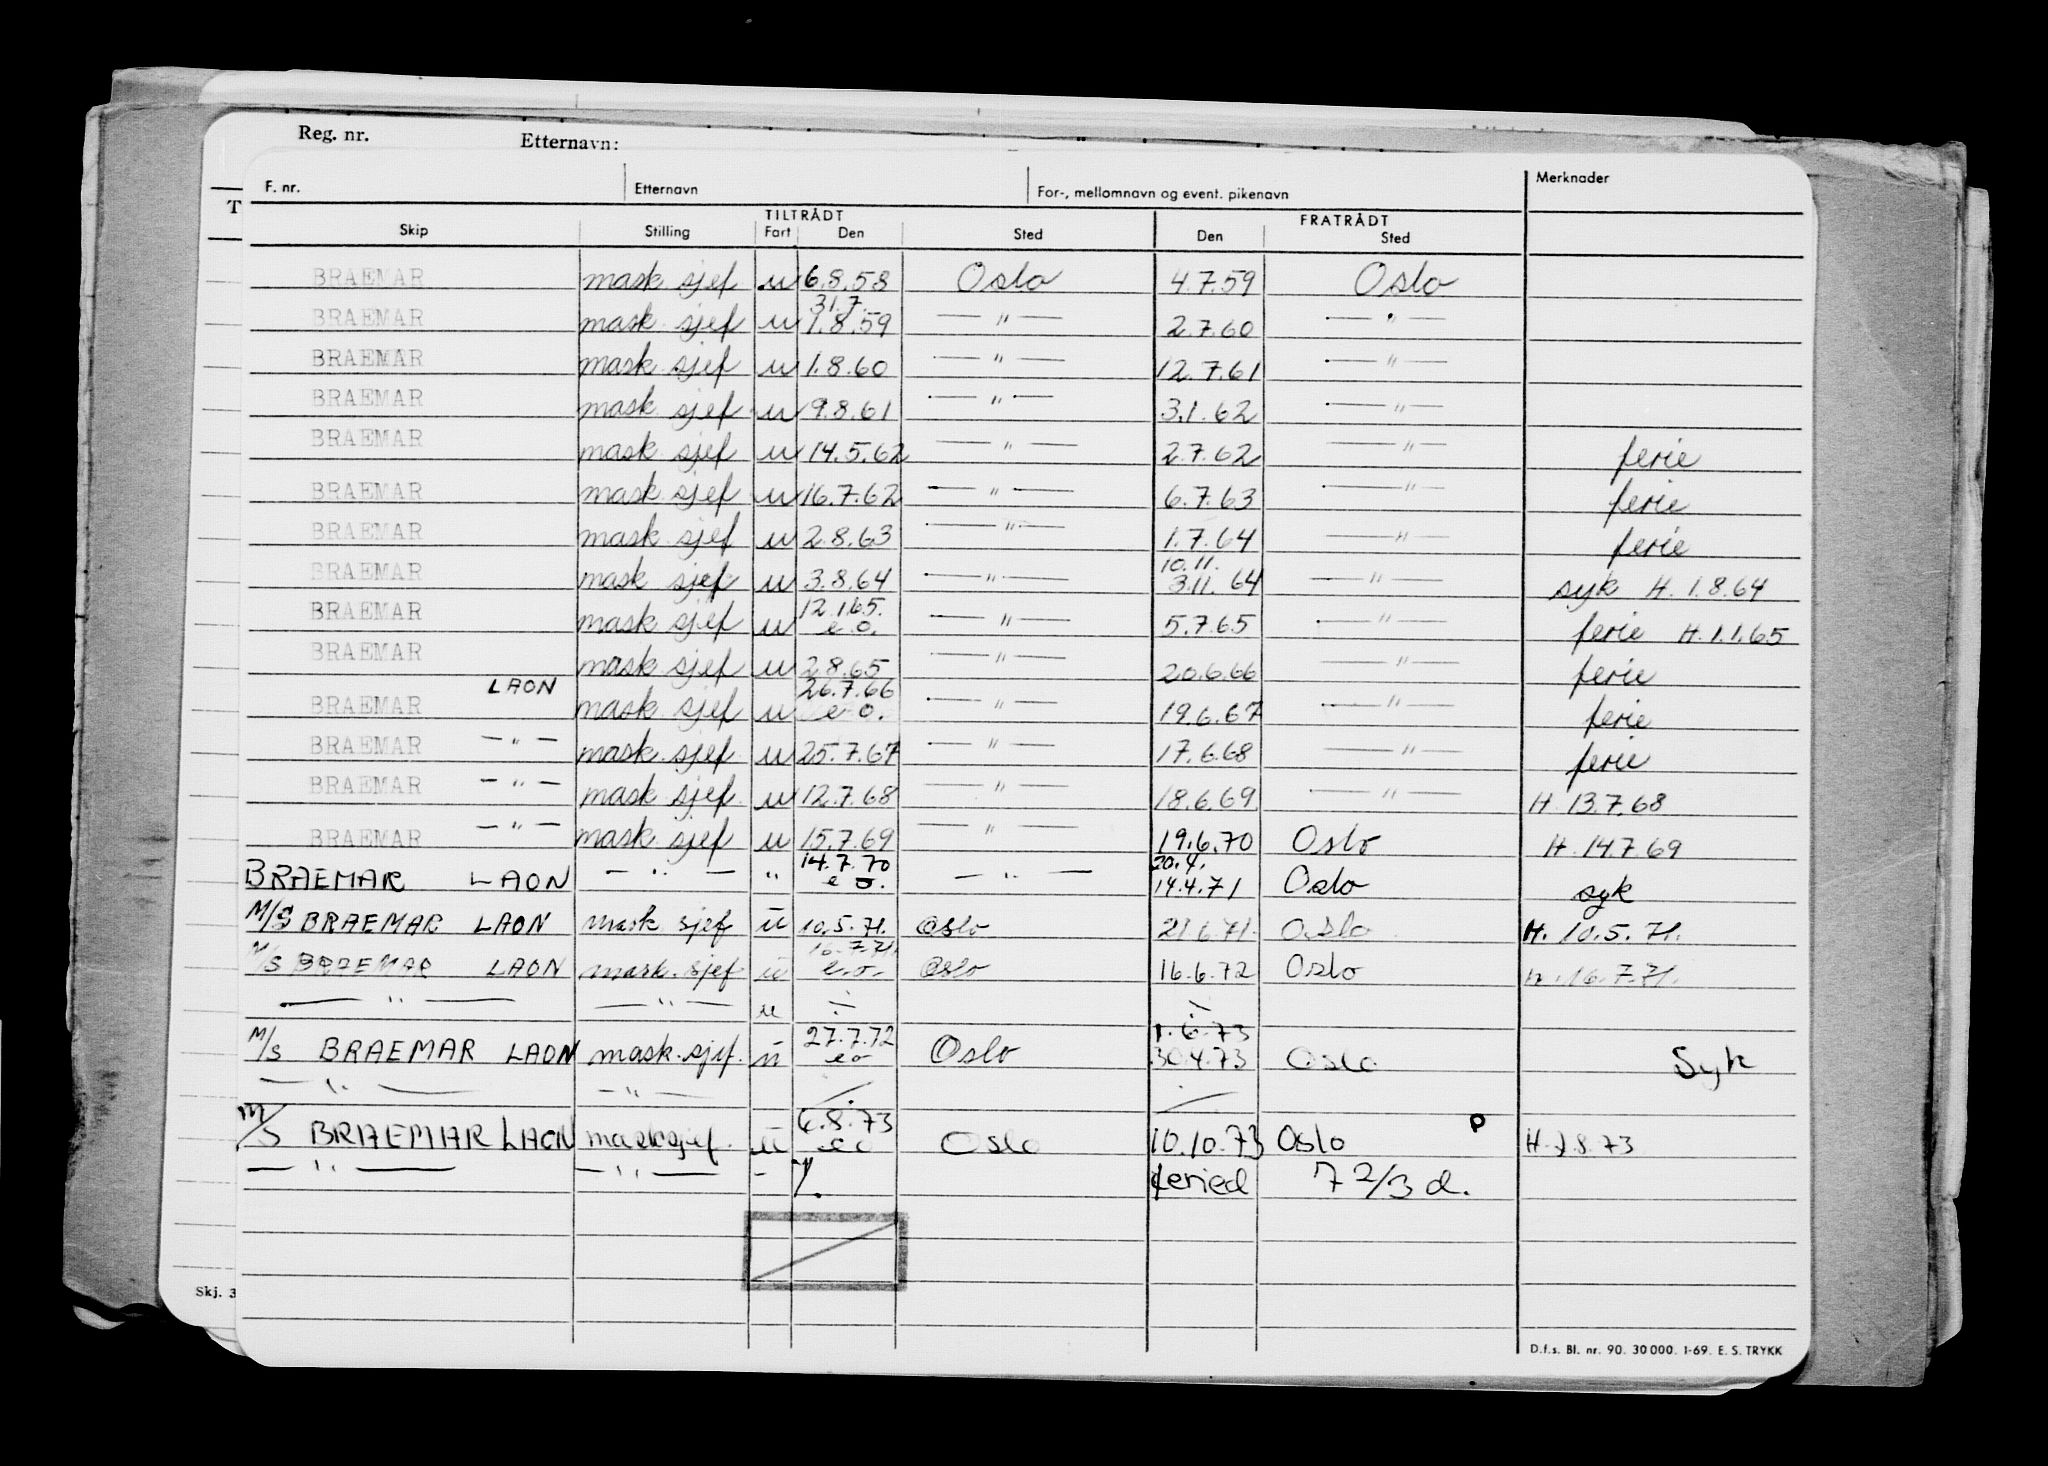 Reg. nr. Etternavn:
F. nr. Etternavn For-, mellomnavn og event. pikenavn Merknader
T TILTRÅDT FRATRÅDT
Skip Stilling Fart Den Sted Den Sted
BRAEMAR mask sjef u 6.8.58 Oslo 4.7.59 Oslo
31.7.
BRAEMAR mask sjef u 1.8.59 — " — 2.7.60 — " —
BRAEMAR mask sjef u 1.8.60 — " — 12.7.61 — " —
BRAEMAR mask sjef u 9.8.61 — " — 3.1.62 — " —
BRAEMAR mask sjef u 14.5.62 — " — 2.7.62 — " — ferie
BRAEMAR mask sjef u 16.7.62 — " — 6.7.63 — " — ferie
BRAEMAR mask sjef u 2.8.63 — " — 1.7.64 — " — ferie
10.11.
BRAEMAR mask sjef u 3.8.64 — " — 3.11.64 — " — syk H. 1.8.64
12.1.65.
BRAEMAR mask sjef u e.o. — " — 5.7.65 — " — ferie H. 1.1.65
BRAEMAR mask sjef u 2.8.65 — " — 20.6.66 — " — ferie
LAON 26.7.66
BRAEMAR mask sjef u e.o. — " — 19.6.67 — " — ferie
BRAEMAR — " — mask sjef u 25.7.67 — " — 17.6.68 — " — ferie
BRAEMAR — " — mask sjef u 12.7.68 — " — 18.6.69 — " — H. 13.7.68
BRAEMAR — " — mask sjef u 15.7.69 — " — 19.6.70 Oslo H. 14.7.69
14.7.70 20.4.
BRAEMAR LAON — " — " e o. — " — 14.4.71 Oslo syk
M/S BRAEMAR LAON mask sjef u 10.5.71. Oslo 21.6.71. Oslo H. 10.5.71.
16.7.71.
M/S BRAEMAR LAON mask. sjef u e.o. Oslo 16.6.72 Oslo H. 16.7.71.
— " — — " — u ÷ ÷
27.7.72 1.6.73
M/S BRAEMAR LAON mask. sjef. u eo Oslo 30.4.73 Oslo Syk
— " — — " —
6.8.73 P
M/S BRAEMAR LAON mask sjef. u eo Oslo 10.10.73 Oslo H. 8.73
— " — — " — -
feried 7 2/3 d.
Skj. 3
D.f.s. Bl. nr. 90. 30 000. 1-69. E. S. TRYKK